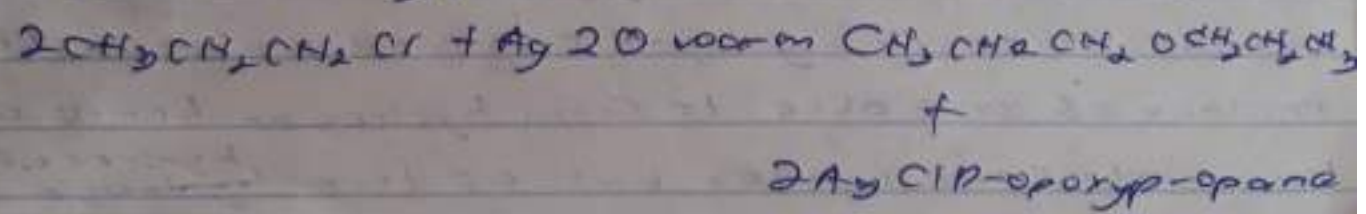 2CH₃CH₂CH₂Cl + Ag 2O warm CH₃CH2CH₂OCH₂CH₂CH₃
+
2AgClp-opoxyp-opane